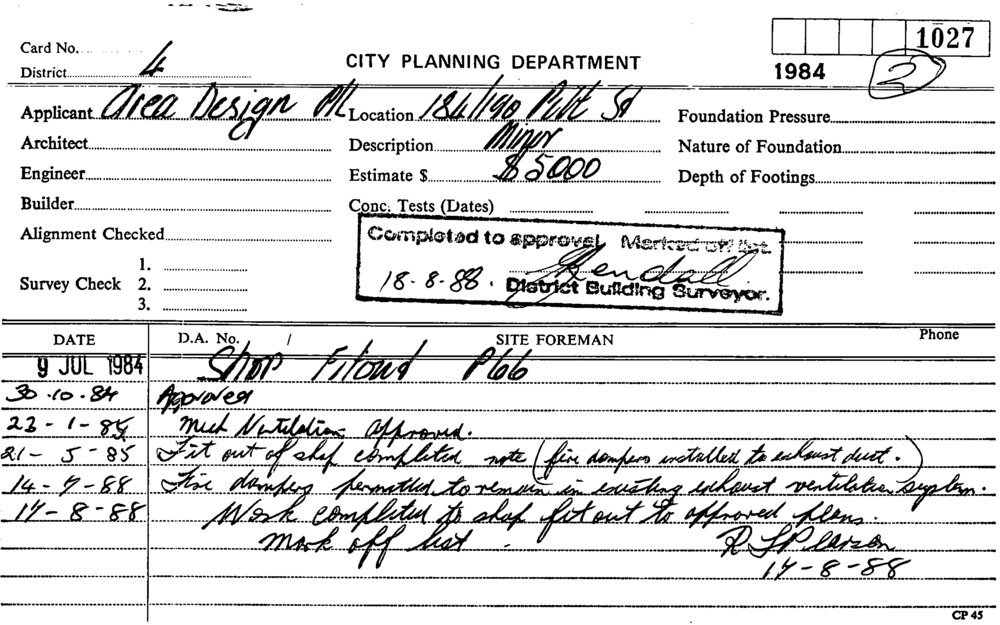 1027
Card No.
District 4
CITY PLANNING DEPARTMENT
1984
2
Applicant Area Design P/L Location 184/190 Pitt St Foundation Pressure
Architect Description Minor Nature of Foundation
Engineer Estimate $ $5000 Depth of Footings
Builder Conc. Tests (Dates)
Alignment Checked
Completed to approval. Marked off list.
Kendall
18-8-88. District Building Surveyor.
Survey Check 1.
2.
3.
DATE D.A. No. / SITE FOREMAN Phone
9 JUL 1984 Shop Fitout P66
30-10-84 Approved
23-1-85 Mech Ventilation approved.
21-5-85 Fit out of shop completed note (fire dampers installed to exhaust duct.)
14-7-88 Fire dampers permitted to remain in existing exhaust ventilation system.
17-8-88 Work completed to shop fit out to approved plans.
Mark off list. R J Pearson
17-8-88
CP 45